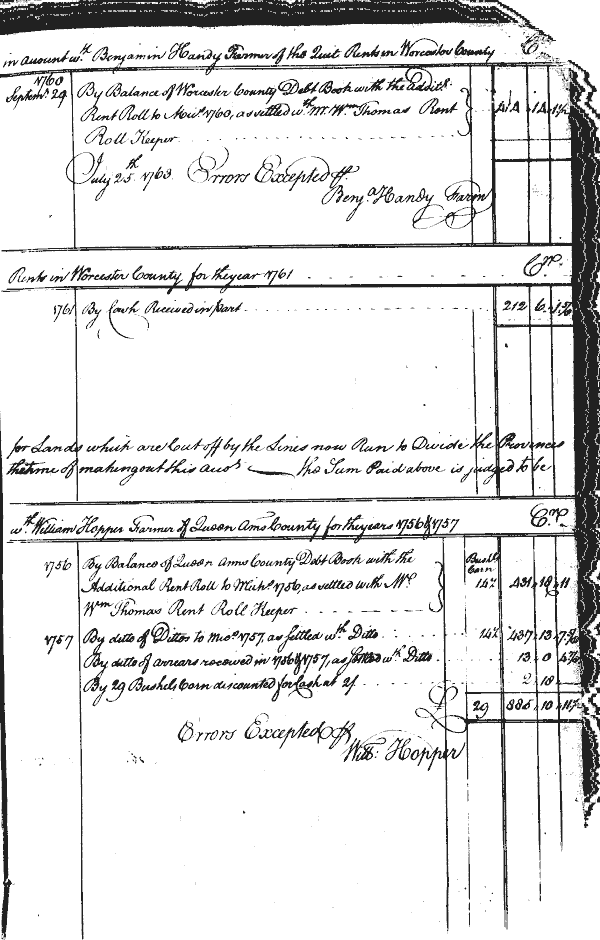 in Account wth. Benjamin Handy Farmer of the Quit Rents in Worcester County Cr
1760
Septemr. 29 By Balance of Worcester County Debt Book with the addit.
Rent Roll to 1760, as settled wth. Mr. Wm. Thomas Rent 414 14
Roll Keeper
July 25th. 1763. Errors Excepted pr.
Benja. Handy Farmr
Rents in Worcester County for the year 1761 Cr.
1761 By Cash Received in part 212 6
for Lands which are Cut off by the Lines now Run to Divide the Provinces
the time of making out this Accot. the Sum Paid above is judged to be
wth. William Hopper Farmer of Queen Anns County for the years 1756 & 1757 Cr.
Bushs.
Corn
1756 By Balance of Queen Anns County Debt Book with the
Additional Rent Roll to Michs. 1756, as settled with Mr. 14½ 431 18 11
Wm Thomas Rent Roll Keeper
1757 By ditto of Ditto to Mics. 1757, as settled wth. Ditto 14½ 437 13
By ditto of arrears received in 1756 & 1757, as settled wth. Ditto 13 0
By 29 Bushels Corn discounted for Cash at 2/ 2 18
29 885 10
Errors Excepted pr.
Willm. Hopper